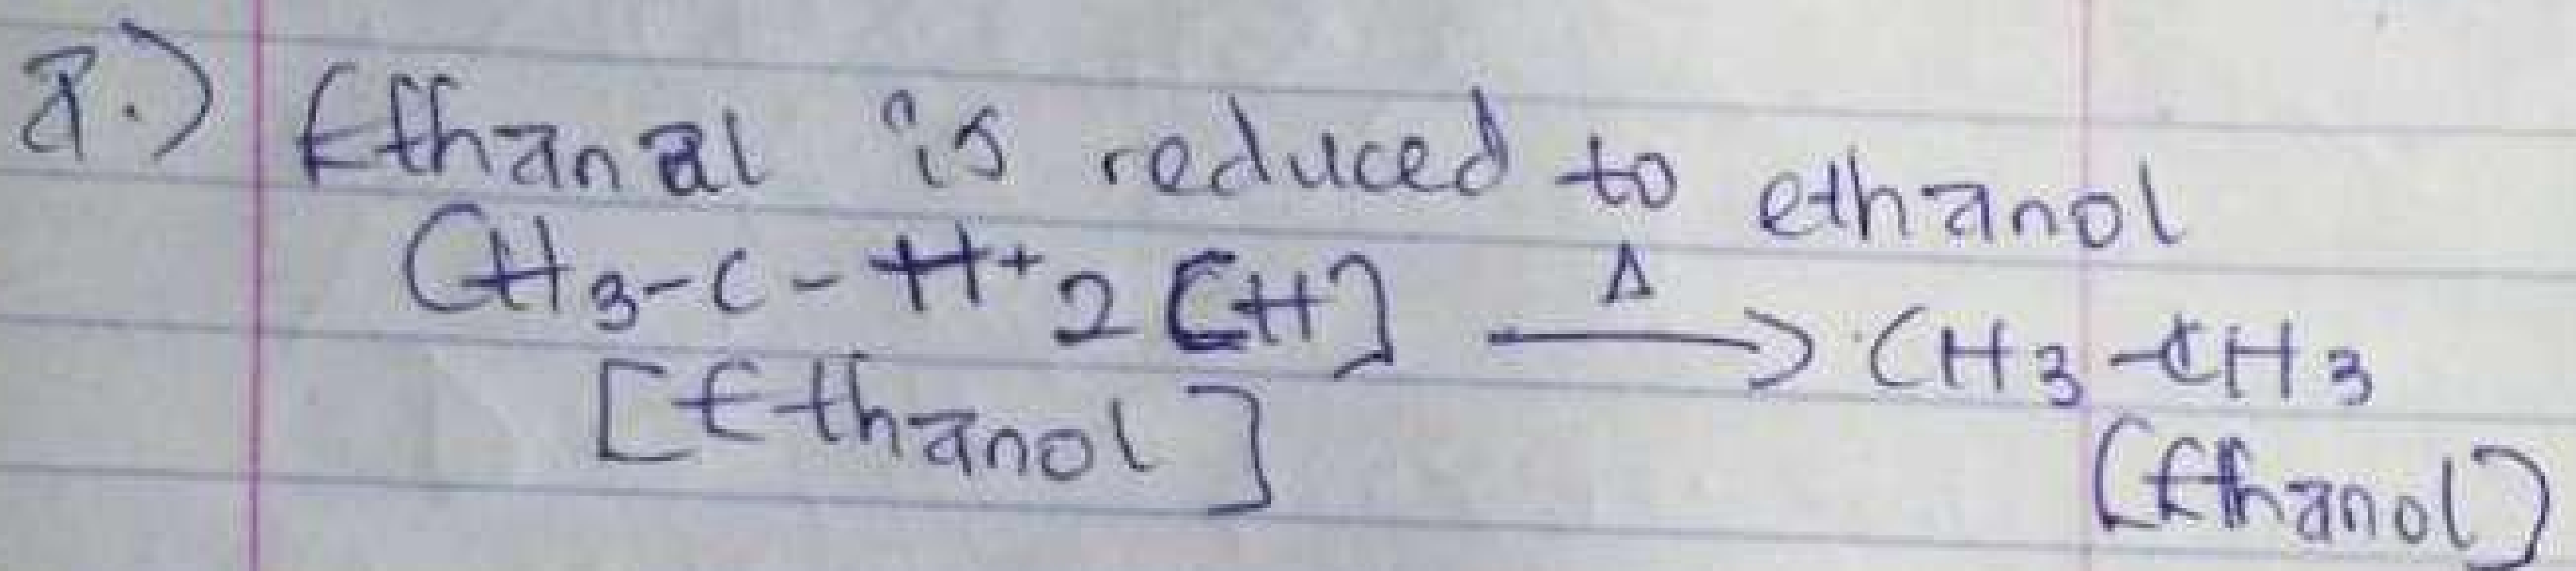 a.) Ethanal is reduced to ethanol
CH3-C-H+2[H] Δ→ CH3-CH3
[Ethanol] (Ethanol)